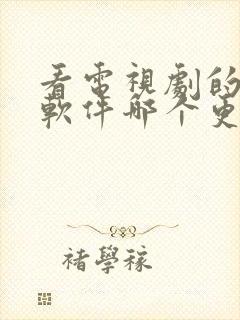 看電視劇的
軟件哪个更
褚學稼